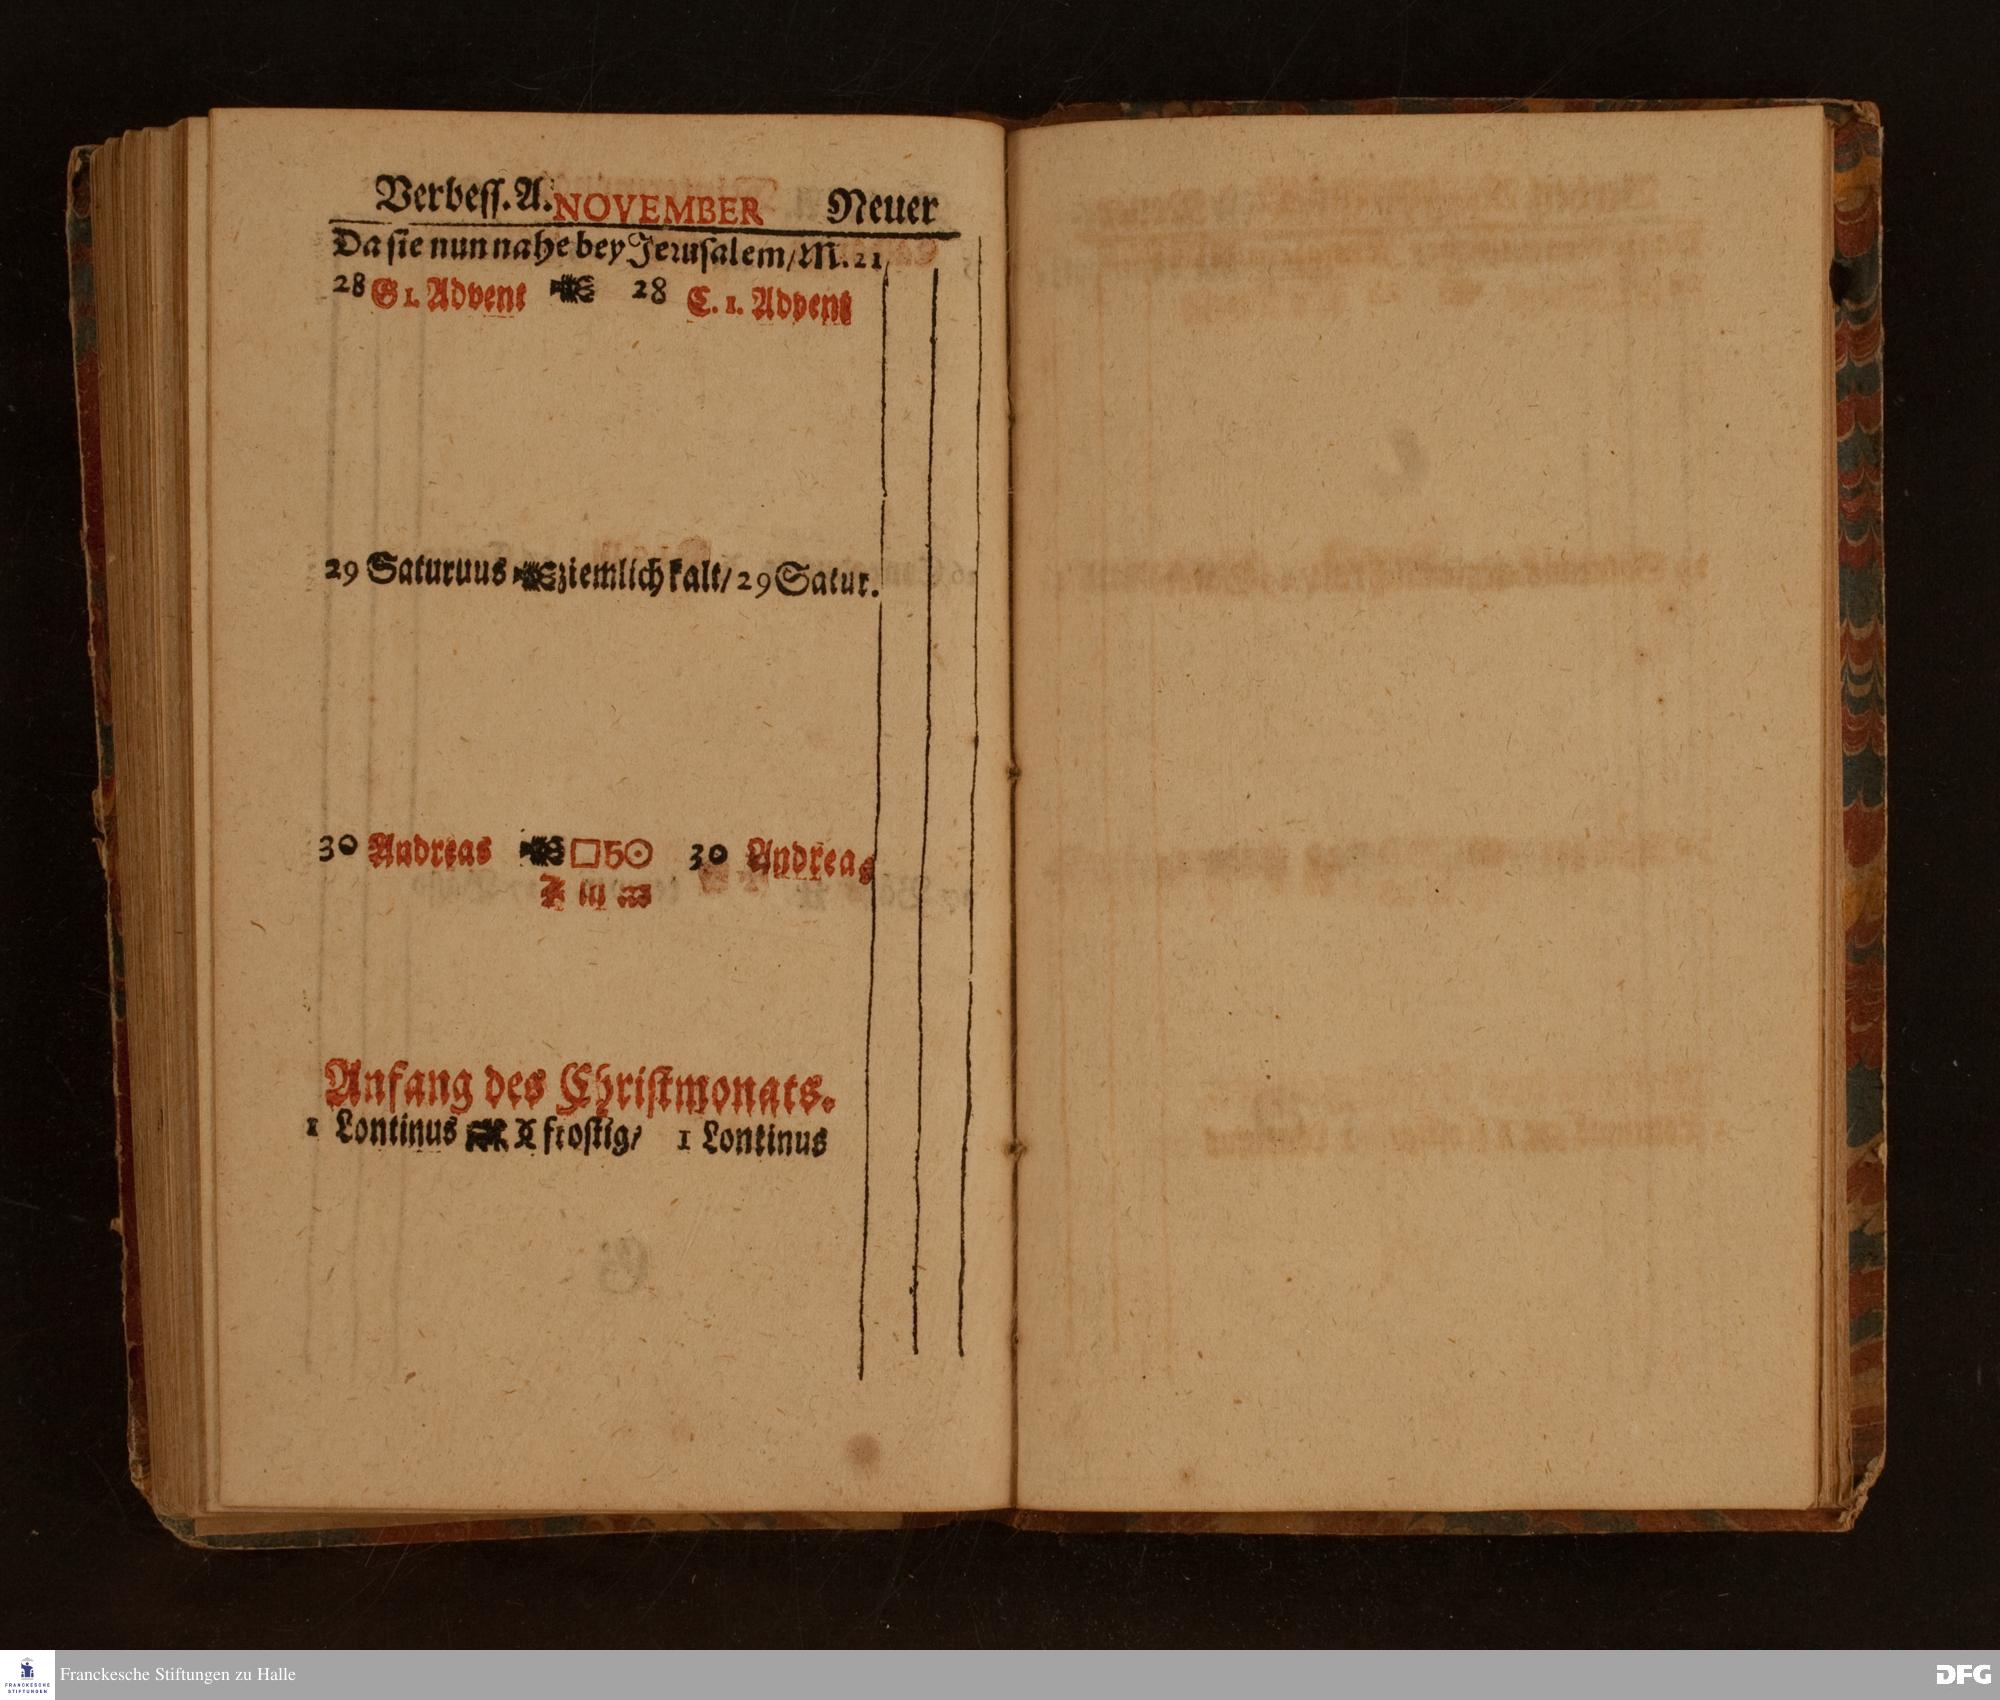 Verbess. A. NOVEMBER Neuer
Da sie nun nahe bey Jerusalem/ M. 21
28 G 1. Advent 28 C. 1. Advent
29 Saturuus ziemlich kalt/ 29 Satur.
30 Andreas □♄☉ 30 Andreas
Anfang des Christmonats.
1 Lontinus frostig/ 1 Lontinus
Franckesche Stiftungen zu Halle
FRANCKESCHE
STIFTUNGEN
DFG